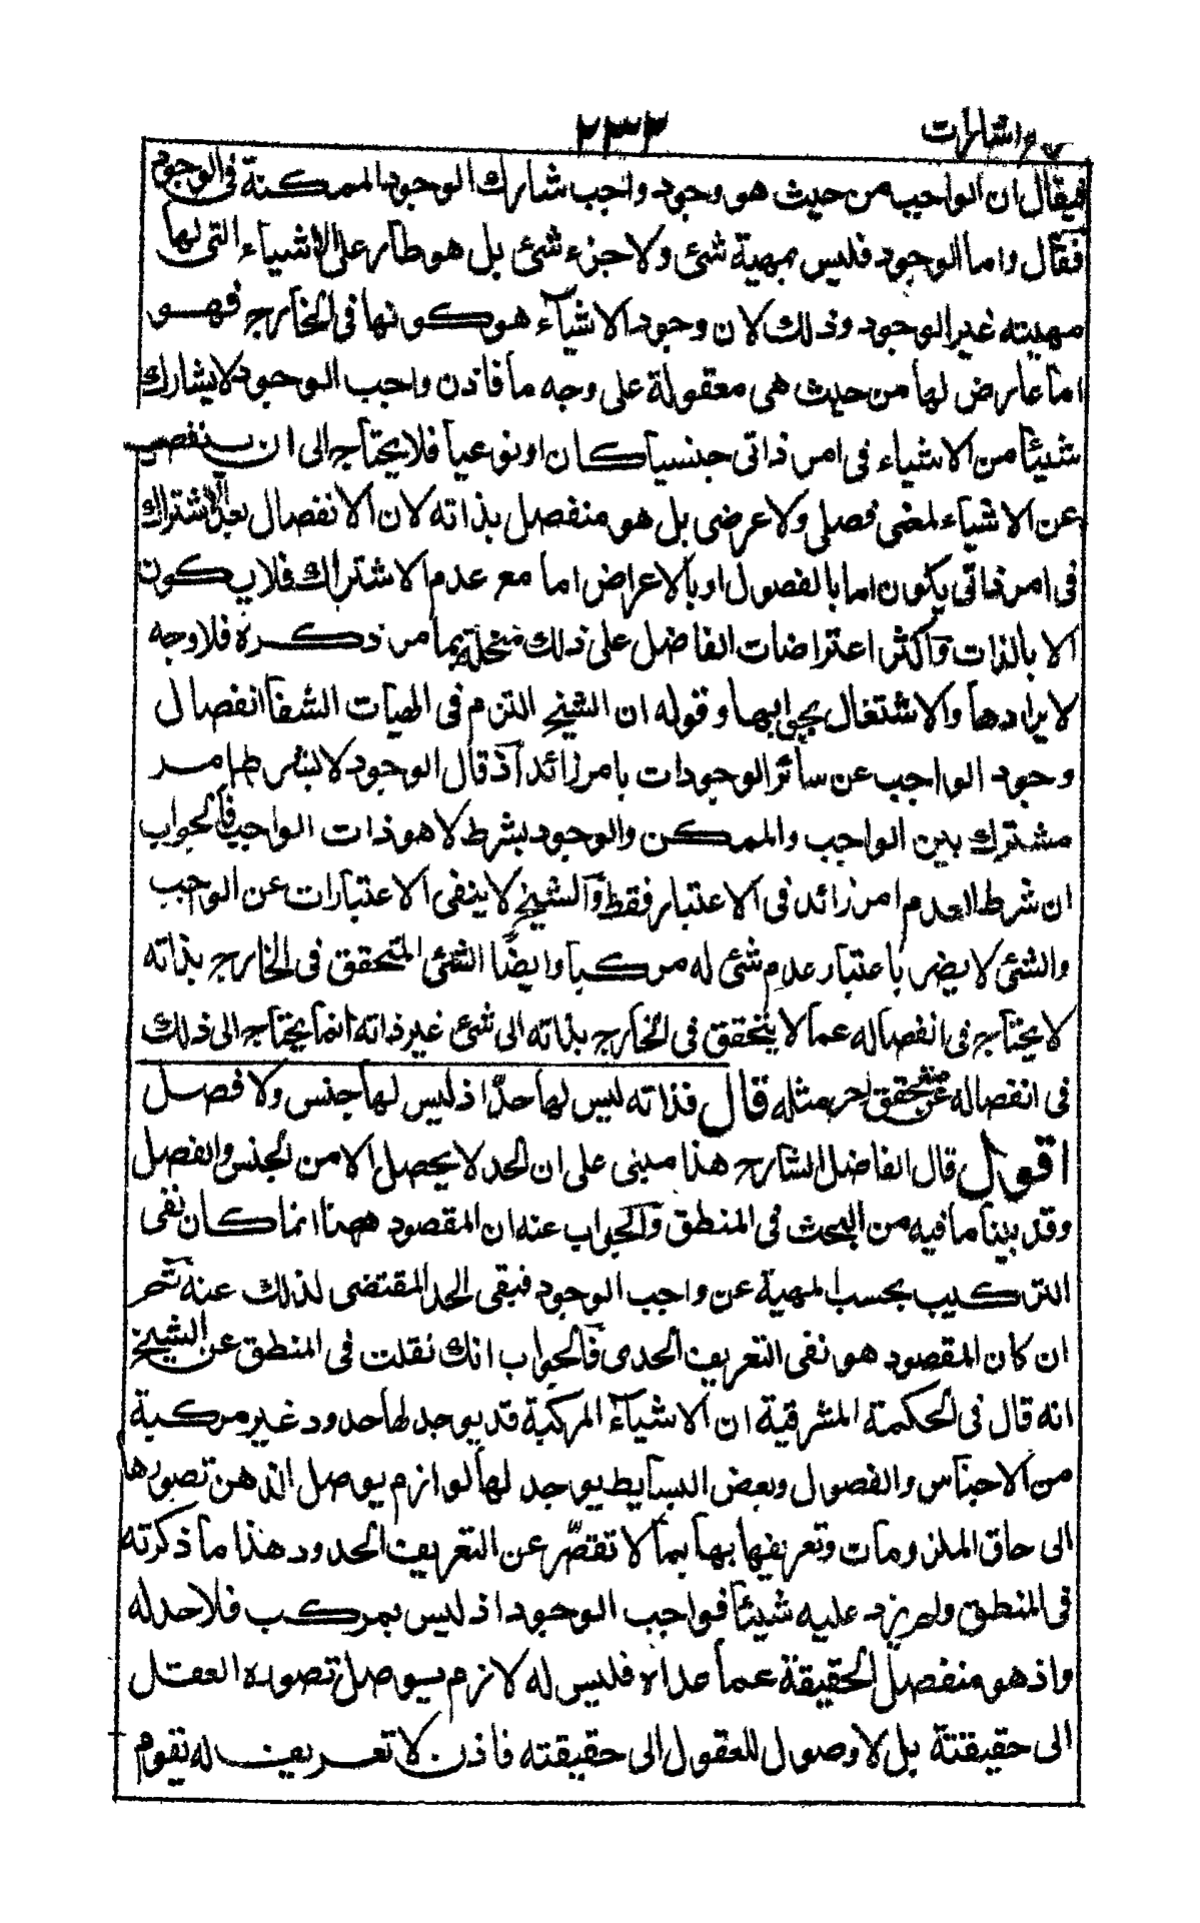 شرح اشارات ٢٣٣
فيقال ان الواجب من حيث هو وجود واجب شارك الوجود الممكنة فى الوجود
فقال واما الوجود فليس بمهية شئ ولا جزء شئ بل هو طار على الاشياء التى لها
مهية غير الوجود وذلك لان وجود الاشياء هو كونها فى الخارج فهو
امر عارض لها من حيث هى معقولة على وجه ما فاذن واجب الوجود لا يشارك
شيئا من الاشياء فى امر ذاتى جنسيا كان او نوعيا فلا يحتاج الى ان ينفصل
عن الاشياء لمعنى فصلى ولا عرضى بل هو منفصل بذاته لان الانفصال بعد الاشتراك
فى امر ذاتى يكون اما بالفصول او بالاعراض اما مع عدم الاشتراك فلا يكون
الا بالذات واكثر اعتراضات الفاضل على ذلك منحلة بما مر ذكره فلا وجه
لايرادها والاشتغال بجوابها وقوله ان الشيخ التزم فى الهيات الشفا انفصال
وجود الواجب عن سائر الوجودات بامر زائد اذ قال الوجود لا بشرط امر
مشترك بين الواجب والممكن والوجود بشرط لا هو ذات الواجب فالجواب
ان شرط العدم امر زائد فى الاعتبار فقط والشيخ لا ينفى الاعتبارات عن الواجب
والشئ لا يصير باعتبار عدم شئ له مركبا وايضًا الشئ المتحقق فى الخارج بذاته
لا يحتاج فى انفصاله عما لا يتحقق فى الخارج بذاته الى شئ غير ذاته انما يحتاج الى ذلك
فى انفصاله عن متحقق اخر مثله قال فذاته ليس لها حدّ اذ ليس لها جنس ولا فصل
اقول قال الفاضل الشارح هذا مبنى على ان الحد لا يحصل الا من الجنس والفصل
وقد بينا ما فيه من البحث فى المنطق والجواب عنه ان المقصود ههنا انما كان نفى
التركيب بحسب المهية عن واجب الوجود فبقى الحد المقتضى لذلك عنه ثم
ان كان المقصود هو نفى التعريف الحدى فالجواب انك نقلت فى المنطق عن الشيخ
انه قال فى الحكمة المشرقية ان الاشياء المركبة قد يوجد لها حدود غير مركبة
من الاجناس والفصول وبعض البسايط يوجد لها لوازم يوصل الذهن تصورها
الى حاق الملزومات وتعريفها بها بما لا تقصّر عن التعريف الحدود هذا ما ذكرته
فى المنطق ولم يزد عليه شيئا فواجب الوجود اذ ليس بمركب فلا حد له
واذ هو منفصل الحقيقة عما عداه فليس له لازم يوصل تصوره العقل
الى حقيقته بل لا وصول للعقول الى حقيقته فاذن لا تعريف له يقوم